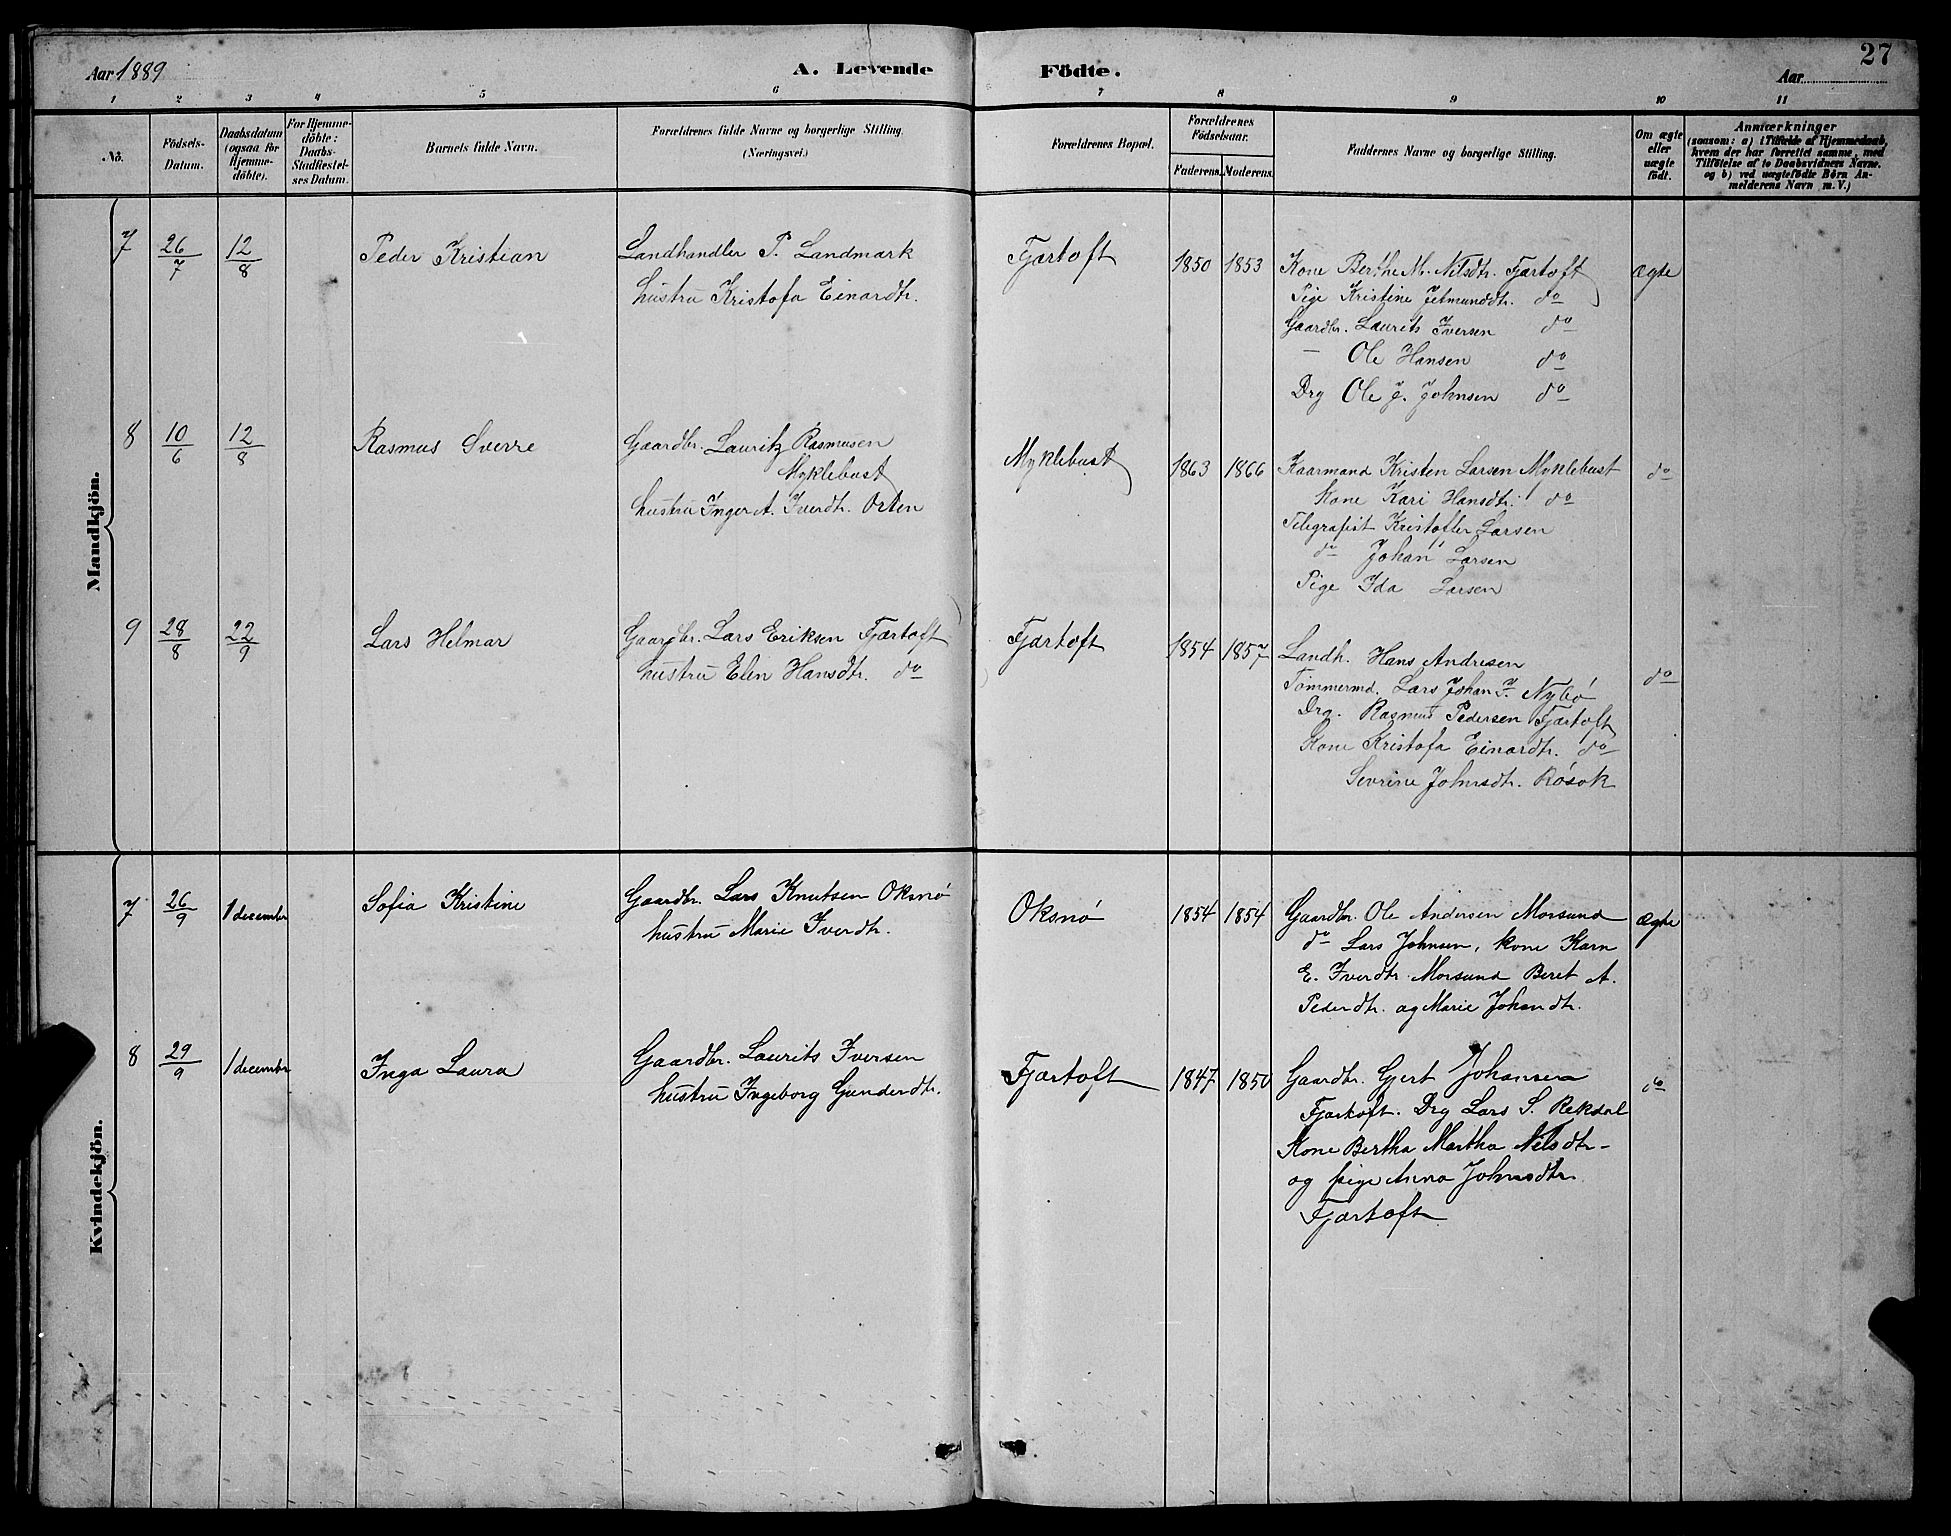 27
Aar 1889
A. Levende
Födte.
Aar
1 2 3 4 5 6 7 8 9 10 11
No.
Födsels-Datum.
Daabsdatum (ogsaa for Hjemme-döbte).
For Hjemme-döbte: Daabs-Stadfæstel-ses Datum.
Barnets fulde Navn.
Forældrenes fulde Navne og borgerlige Stilling.
(Næringsvei.)
Forældrenes Bopæl.
Forældrenes Födselsaar.
Faderens. Moderens.
Faddernes Navne og borgerlige Stilling.
Om ægte eller uægte födt.
Anmærkninger
(saasom: a) i Tilfælde af Hjemmedaab,
hvem der har forrettet samme, med
Tilföielse af to Daabsvidners Navne.
og b) ved uægtefödte Börn An-
melderens Navn m. V.)
Mandkjön.
7 26/7 12/8 Peder Kristian
Landhandler P. Landmark
hustru Kristofa Einardtr.
Fjærtoft 1850 1853
Kone Berthe M. Nilsdtr. Fjærtoft
Pige Kristine Jetmunddtr. do
Gaardbr. Laurits Iversen do
— Ole Hansen do
Drg Ole J. Johnsen do
ægte
8 10/6 12/8 Rasmus Sverre
Gaardbr. Lauritz Rasmusen
Myklebust
hustru Inger A. Iverdtr. Orten
Myklebust 1863 1866
Kaarmand Kristen Larsen Myklebust
Kone Kari Hansdtr. do
Telegrafist Kristoffer Larsen
do Johan Larsen
Pige Ida Larsen
do
9 28/8 22/9 Lars Helmar
Gaardbr. Lars Eriksen Fjærtoft
hustru Elen Hansdtr. do
Fjærtoft 1854 1857
Landh. Hans Andresen
Tömmermd. Lars Johan I. Nybö
Drg. Rasmus Pedersen Fjærtoft
Kone Kristofa Einardtr. do
Sevrine Johnsdtr. Rösok
do
Kvindekjön.
7 26/9 1 december Sofia Kristine
Gaardbr. Lars Knutsen Oksnö
hustru Marie Iverdtr.
Oksnö 1854 1854
Gaardbr. Ole Andersen Morsund
do Lars Johnsen, kone Karn
E. Iverdtr. Morsund Beret A.
Pederdtr. og Marie Johandtr.
ægte
8 29/9 1 december Inga Laura
Gaardbr. Laurits Iversen
hustru Ingeborg Gunderdtr.
Fjærtoft 1847 1850
Gaardbr. Gjert Johansen
Fjærtoft. Drg Lars S. Rekdal
Kone Bertha Martha Nilsdtr-
og pige Anna Johnsdtr
Fjærtoft
do